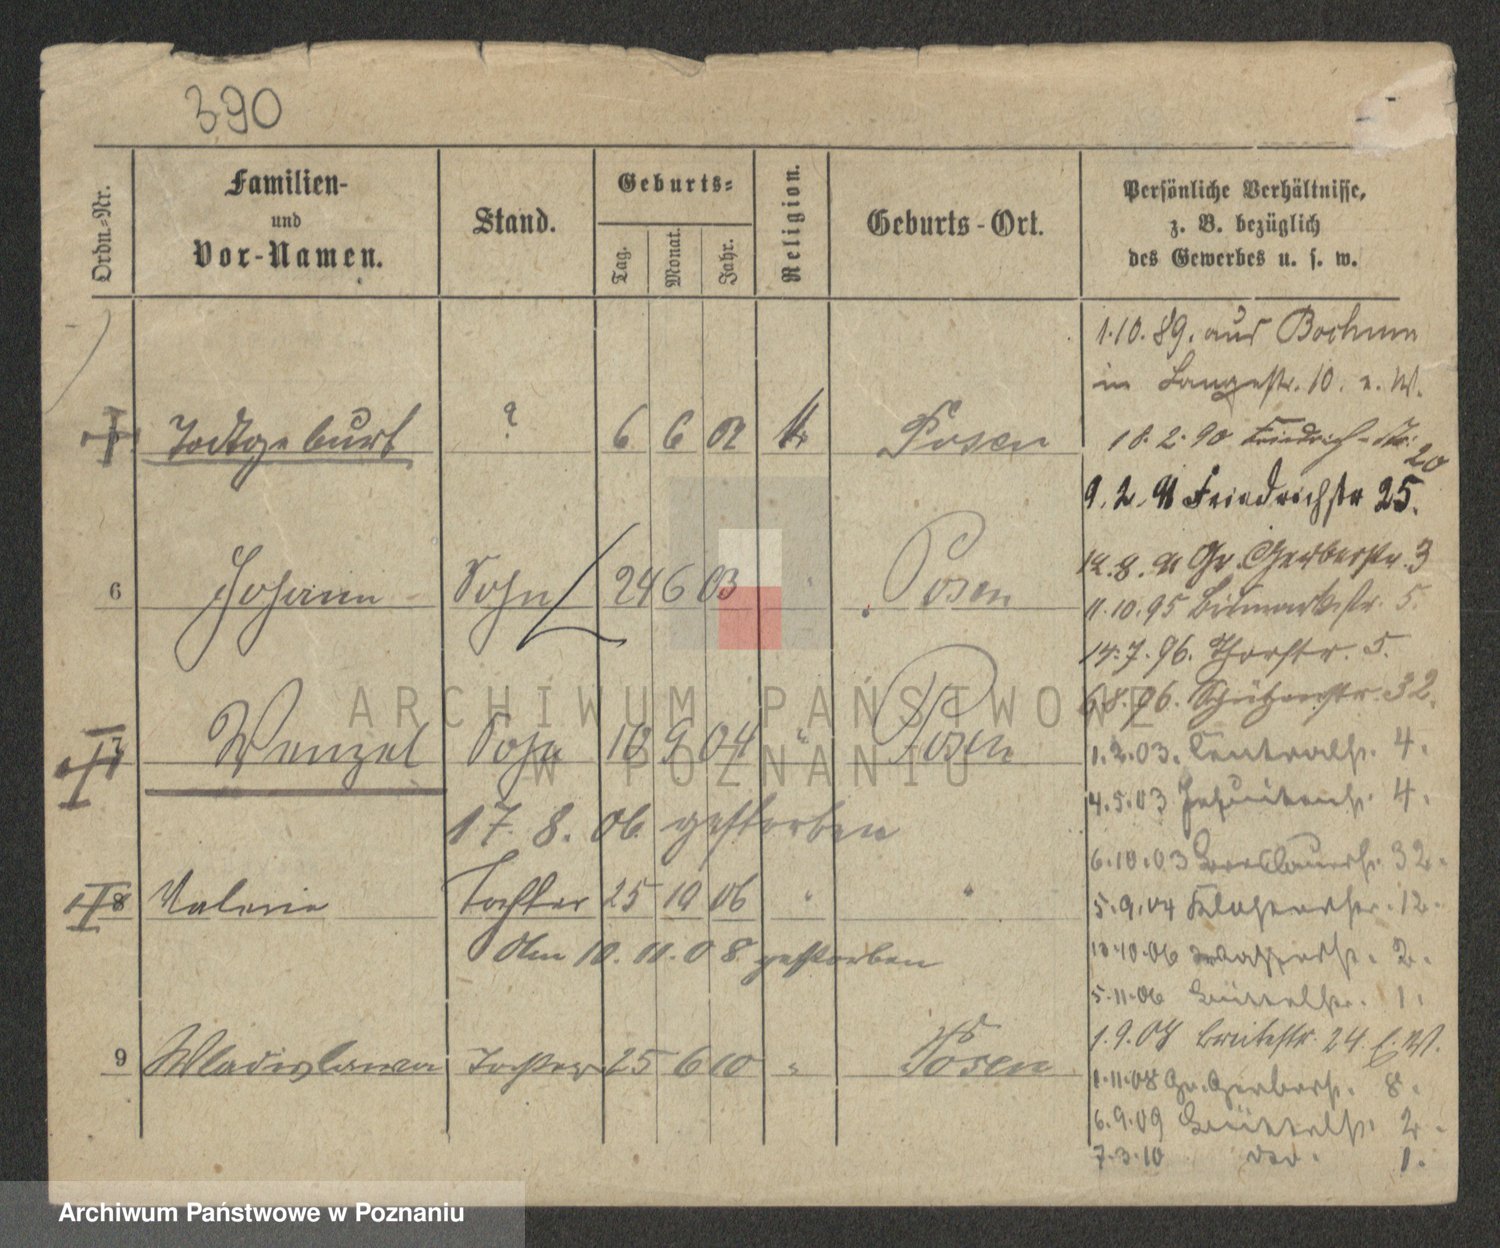 390
Ordn.-Nr.
Familien-
und
Vor-Namen.
Stand.
Geburts-
Tag.
Monat.
Jahr.
Religion.
Geburts-Ort.
Persönliche Verhältnisse,
z. B. bezüglich
des Gewerbes u. s. w.
1.10.89. aus Bochum
in Langestr. 10. e. W.
Todtgeburt ? 6 6 02 Posen
18.2.90 Friedrich-Str. 20
9.2.91 Friedrichstr 25.
12.8.91 Gr. Gerberstr. 3
6 Johann Sohn 24 6 03 " Posen
11.10.95 Bismarckstr. 5.
14.7.96. Thorstr. 5.
6.8.96. Schützenstr. 32.
7 Wenzel Sohn 18 9 04 " Posen
1.2.03. Centralstr. 4.
4.5.03 Jesuitenstr. 4.
17. 8. 06 gestorben
6.10.03 Breslauerstr. 32.
8 Valerie Tochter 25 10 06 " "
5.9.04 Klosterstr. 12.
Am 10. 11. 08 gestorben
10.10.06 Wasserstr. 2.
5.11.06 Büttelstr. 1.
1.9.07 Breitestr. 24 E. W.
9 Wladislawa Tochter 25 6 10 " Posen
1.11.08 Gr. Gerberstr. 8.
6.9.09 Büttelstr. 2.
7.3.10 1.
ARCHIWUM PAŃSTWOWE
W POZNANIU
Archiwum Państwowe w Poznaniu